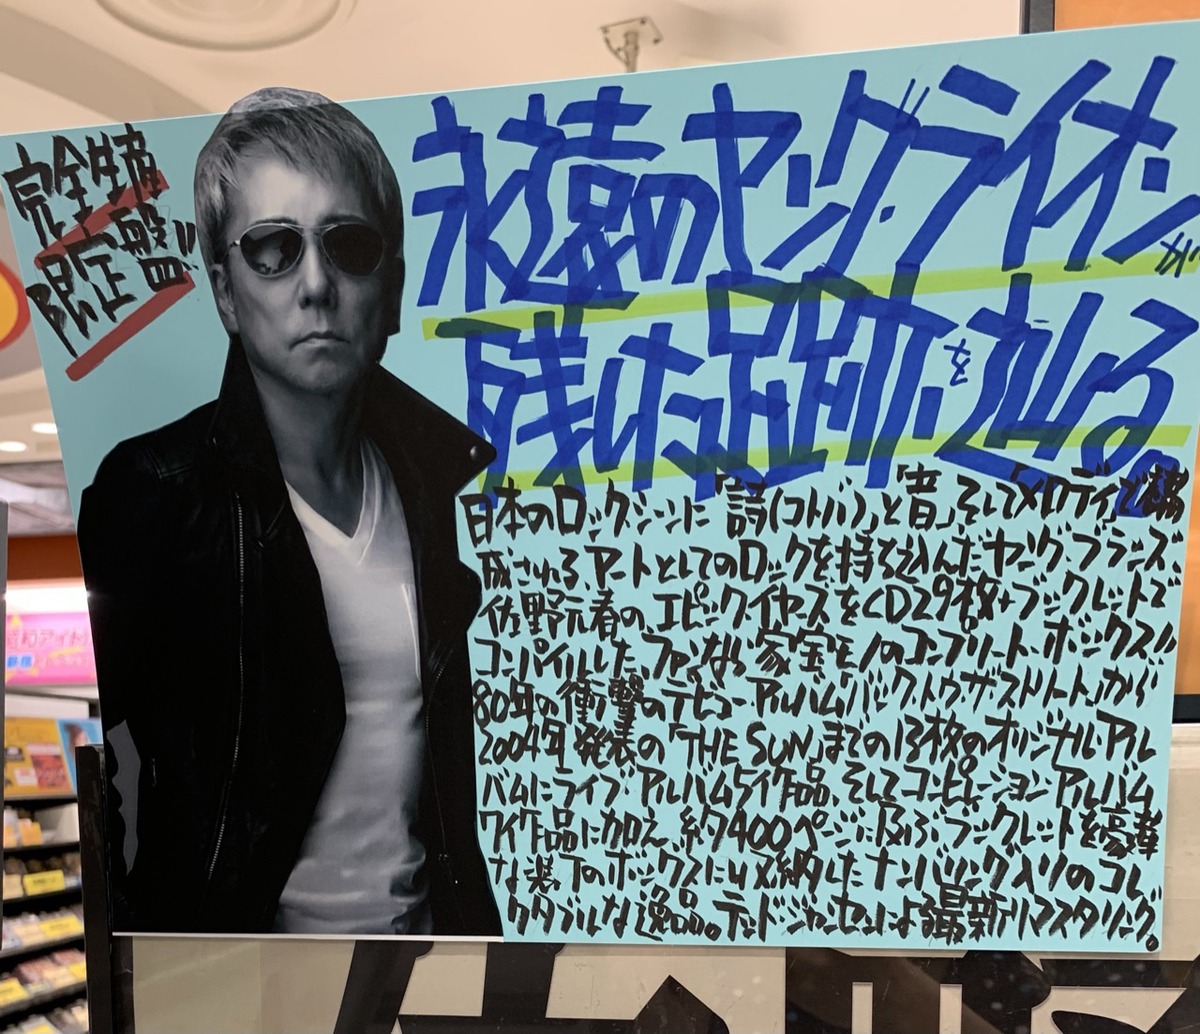 完全生産
限定盤!!
永遠のヤング・ライオンが
残した足跡を辿る。
日本のロック・シーンに「詩(コトバ)」と「音」、そして「メロディ」で構
成される、アートとしてのロックを持ち込んだヤング・ブラッズ、
佐野元春のエピック・イヤーズをCD29枚+ブックレットで
コンパイルした、ファンなら家宝モノのコンプリート・ボックス!!
80年の衝撃のデビュー・アルバム「バック・トゥ・ザ・ストリート」から
2004年発表の「THE SUN」までの13枚のオリジナル・アル
バムにライブ・アルバム5作品、そしてコンピレーション・アルバム
7作品に加え、約400ページに及ぶブックレットを豪華
な装丁のボックスに収納したナンバリング入りのコレ
クタブルな逸品。テッド・ジャンセンによる最新リマスタリング。